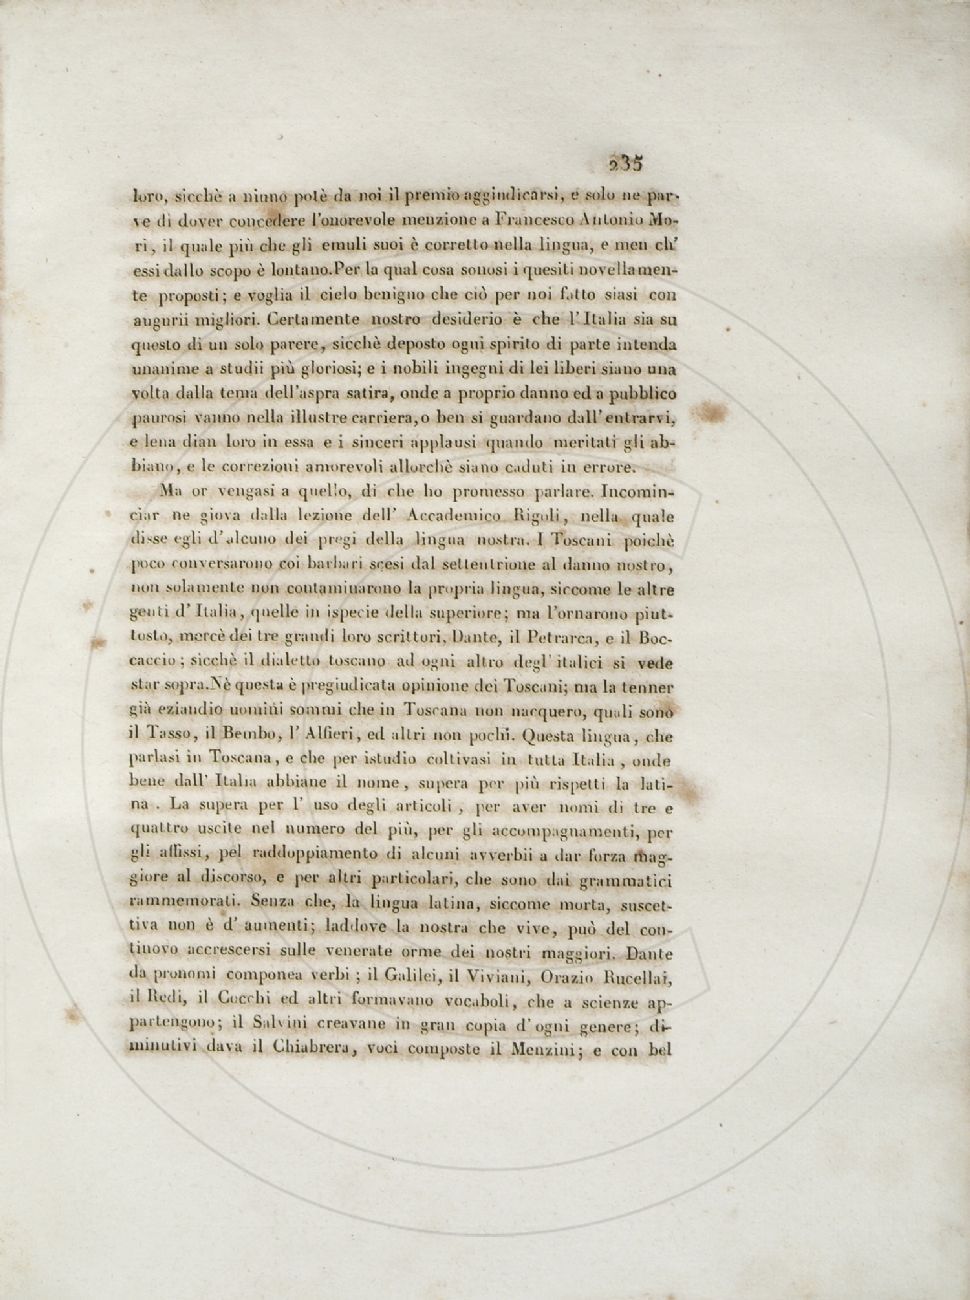 235
loro, sicchè a niuno potè da noi il premio aggiudicarsi, e solo ne par-
ve di dover concedere l'onorevole menzione a Francesco Antonio Mo-
ri, il quale più che gli emuli suoi è corretto nella lingua, e men ch'
essi dallo scopo è lontano. Per la qual cosa sonosi i quesiti novellamen-
te proposti; e voglia il cielo benigno che ciò per noi fatto siasi con
augurii migliori. Certamente nostro desiderio è che l'Italia sia su
questo di un solo parere, sicchè deposto ogni spirito di parte intenda
unanime a studii più gloriosi; e i nobili ingegni di lei liberi siano una
volta dalla tema dell'aspra satira, onde a proprio danno ed a pubblico
paurosi vanno nella illustre carriera, o ben si guardano dall'entrarvi,
e lena dian loro in essa e i sinceri applausi quando meritati gli ab-
biano, e le correzioni amorevoli allorchè siano caduti in errore.
Ma or vengasi a quello, di che ho promesso parlare. Incomin-
ciar ne giova dalla lezione dell' Accademico Rigoli, nella quale
disse egli d'alcuno dei pregi della lingua nostra. I Toscani poichè
poco conversarono coi barbari scesi dal settentrione al danno nostro,
non solamente non contaminarono la propria lingua, siccome le altre
genti d' Italia, quelle in ispecie della superiore; ma l'ornarono piut-
tosto, mercè dei tre grandi loro scrittori, Dante, il Petrarca, e il Boc-
caccio; sicchè il dialetto toscano ad ogni altro degl' italici si vede
star sopra. Nè questa è pregiudicata opinione dei Toscani; ma la tenner
già eziandio uomini sommi che in Toscana non nacquero, quali sono
il Tasso, il Bembo, l' Alfieri, ed altri non pochi. Questa lingua, che
parlasi in Toscana, e che per istudio coltivasi in tutta Italia, onde
bene dall' Italia abbiane il nome, supera per più rispetti la lati-
na. La supera per l' uso degli articoli, per aver nomi di tre e
quattro uscite nel numero del più, per gli accompagnamenti, per
gli affissi, pel raddoppiamento di alcuni avverbii a dar forza mag-
giore al discorso, e per altri particolari, che sono dai grammatici
rammemorati. Senza che, la lingua latina, siccome morta, suscet-
tiva non è d' aumenti; laddove la nostra che vive, può del con-
tinovo accrescersi sulle venerate orme dei nostri maggiori. Dante
da pronomi componea verbi; il Galilei, il Viviani, Orazio Rucellai,
il Redi, il Cocchi ed altri formavano vocaboli, che a scienze ap-
partengono; il Salvini creavane in gran copia d' ogni genere; di-
minutivi dava il Chiabrera, voci composte il Menzini; e con bel